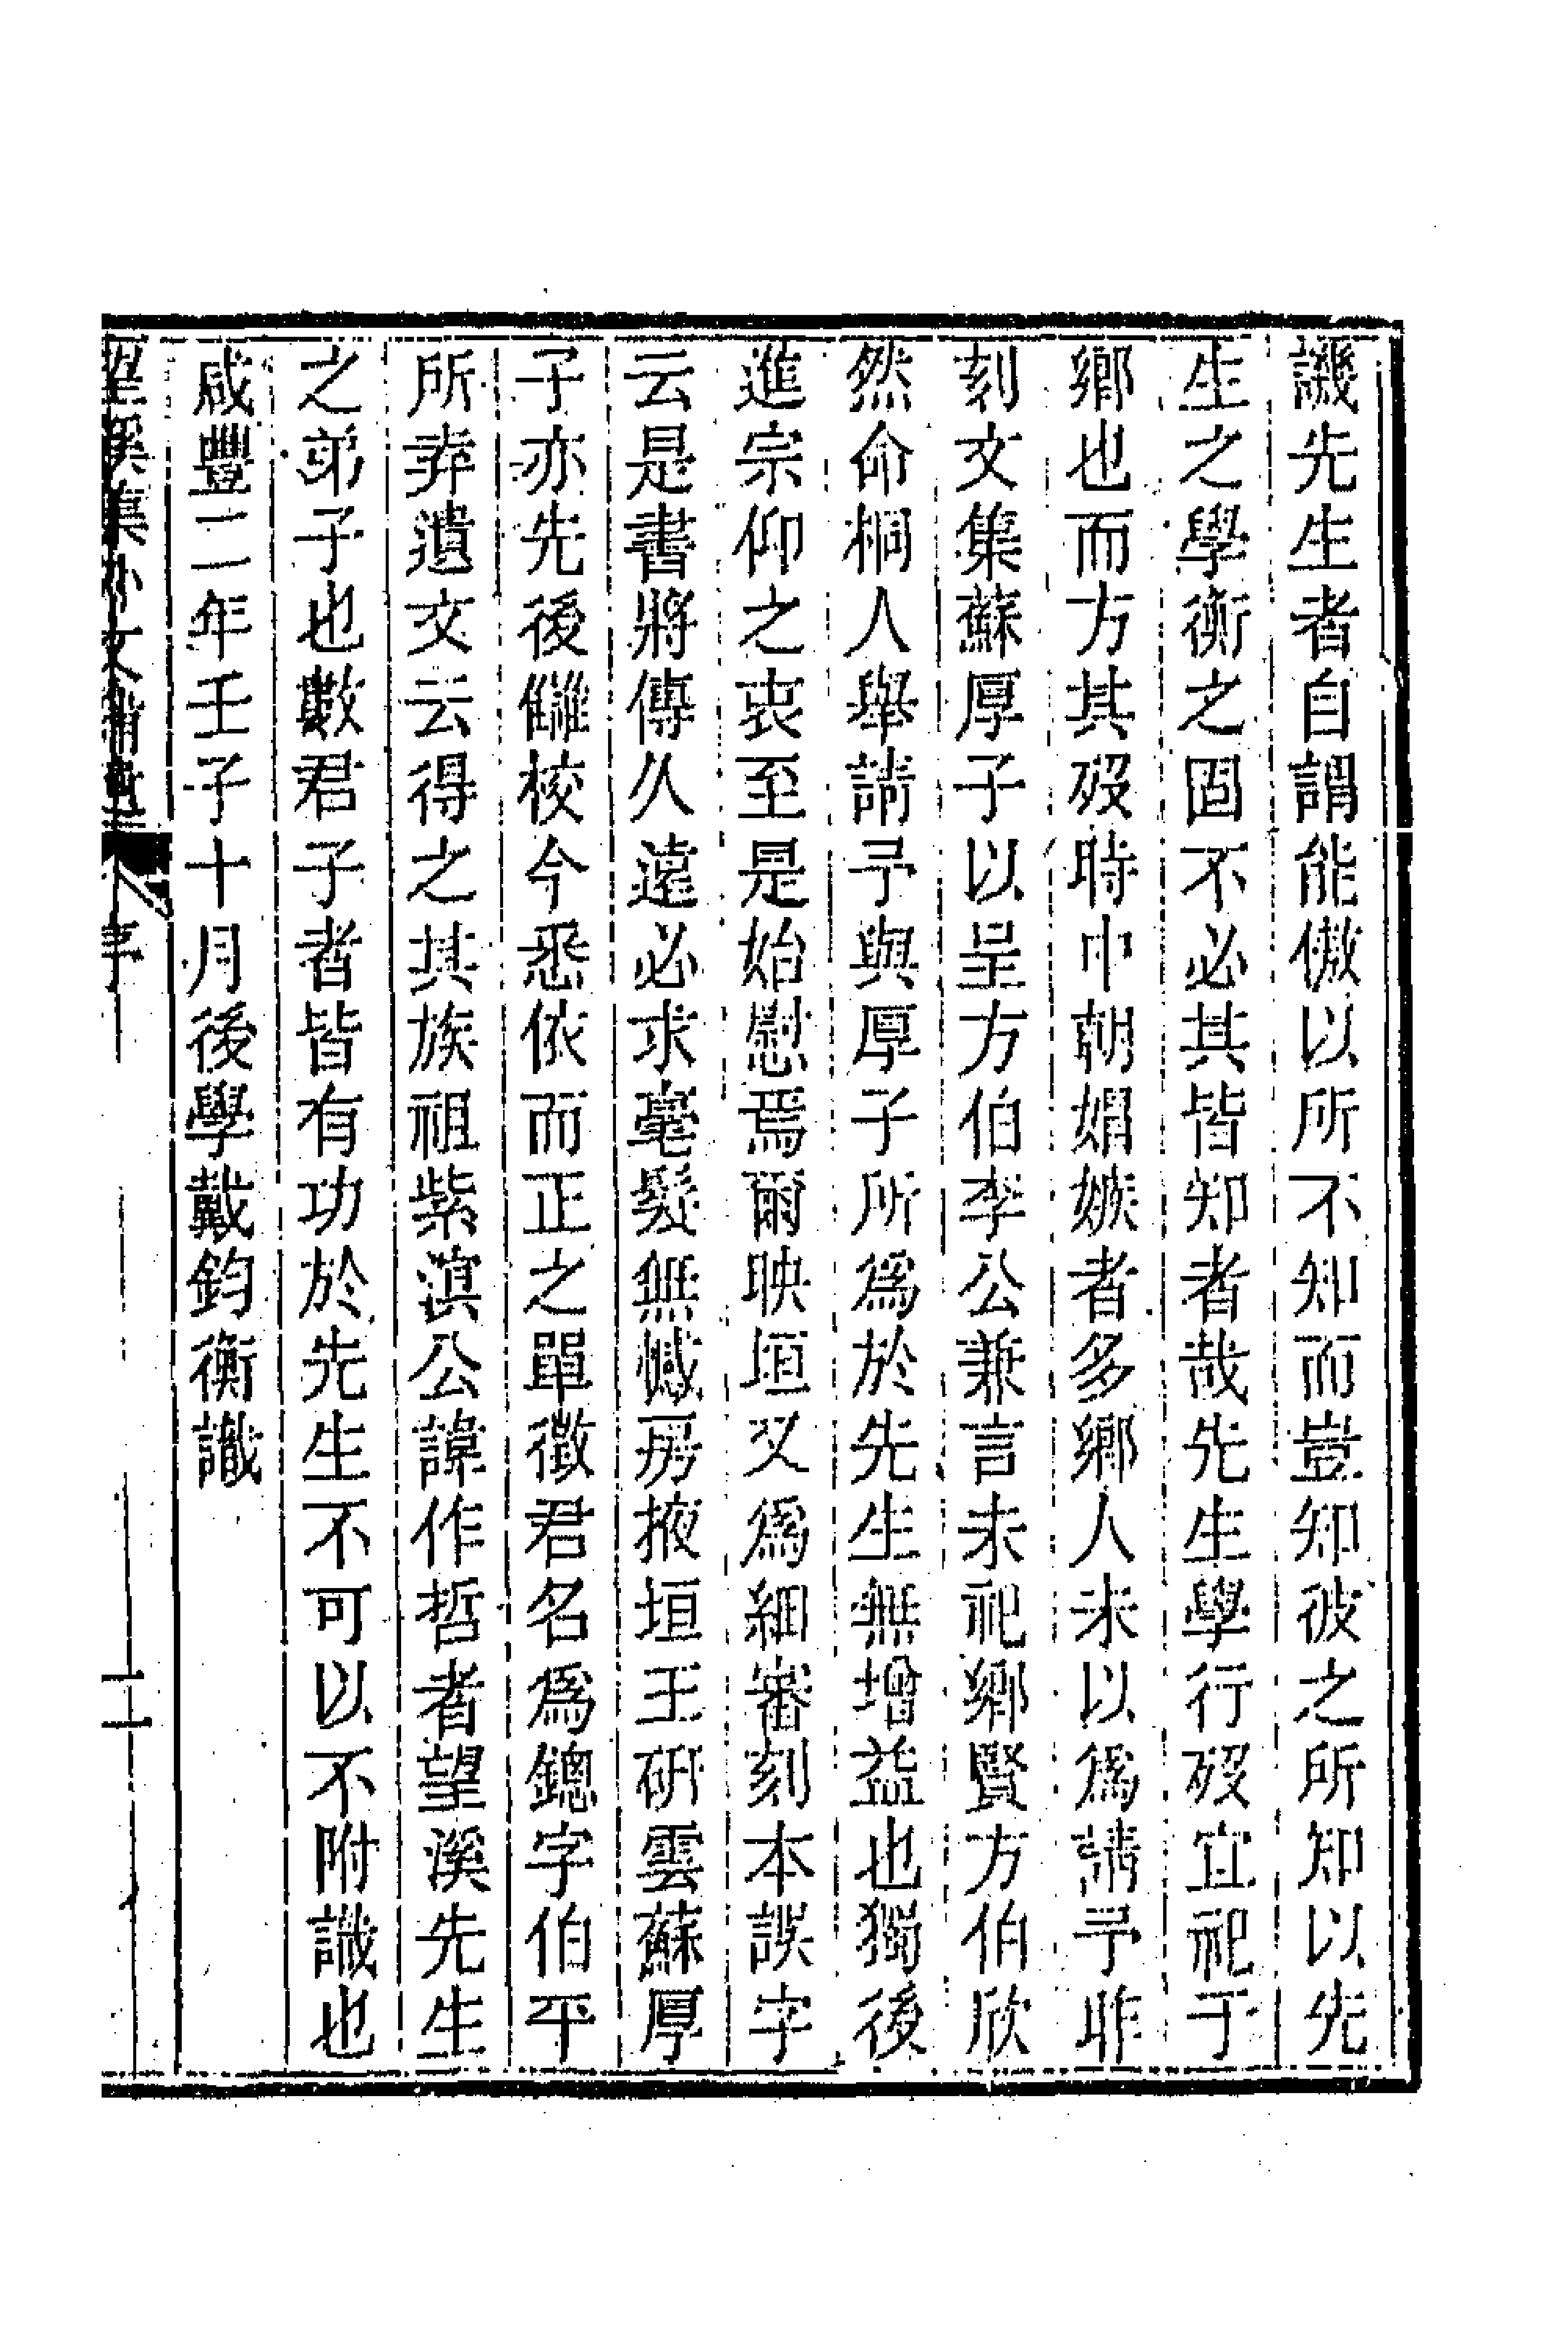 譏先生者自謂能傲以所不知而豈知彼之所知以先
生之學衡之固不必其皆知者哉先生學行歿宜祀于
鄉也而方其歿時中朝媢嫉者多鄉人未以爲請予非
刻文集蘇厚子以呈方伯李公兼言未祀鄉賢方伯欣
然命桐人舉請予與厚子所爲於先生無增益也獨後
進宗仰之衷至是始慰焉爾映垣又爲細審刻本誤字
云是書將傳久遠必求毫髮無憾房掖垣王研雲蘇厚
子亦先後讎校今悉依而正之單徵君名爲鏓字伯平
所弆遺文云得之其族祖紫溟公諱作哲者望溪先生
之弟子也數君子者皆有功於先生不可以不附識也
咸豐二年壬子十月後學戴鈞衡識
望溪集外文補遺 序 二